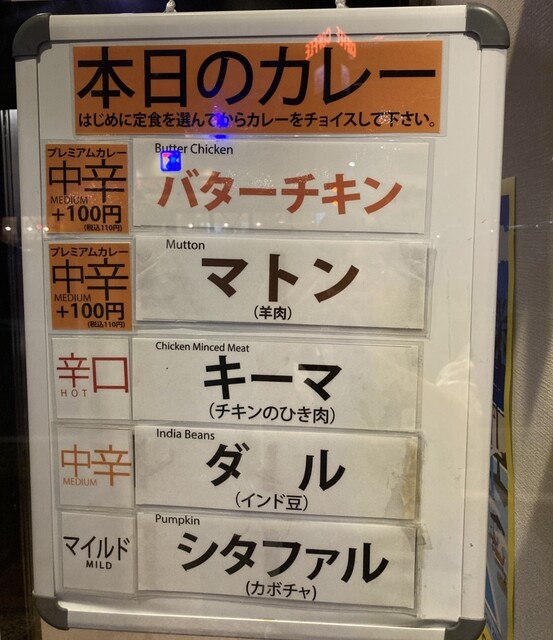 本日のカレー
はじめに定食を選んでからカレーをチョイスして下さい。
プレミアムカレー
中辛
MEDIUM
+100円
(税込110円)
Butter Chicken
バターチキン
プレミアムカレー
中辛
MEDIUM
+100円
(税込110円)
Mutton
マトン
(羊肉)
辛口
HOT
Chicken Minced Meat
キーマ
(チキンのひき肉)
中辛
MEDIUM
India Beans
ダル
(インド豆)
マイルド
MILD
Pumpkin
シタファル
(カボチャ)